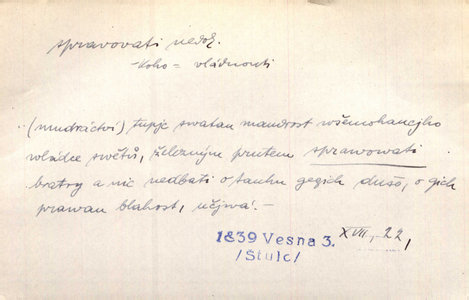 spravovati nedok.
-koho = vládnouti
(mudráctví) tupje swatau maudrost wšemohaucjho
wládce swětů, železným prutem sprawowati
bratry a nic nedbati o tauhu gegich dušj, o gich
prawau blahost, učjwá. –
1839 Vesna 3. XVII, 22,
/Štulc/